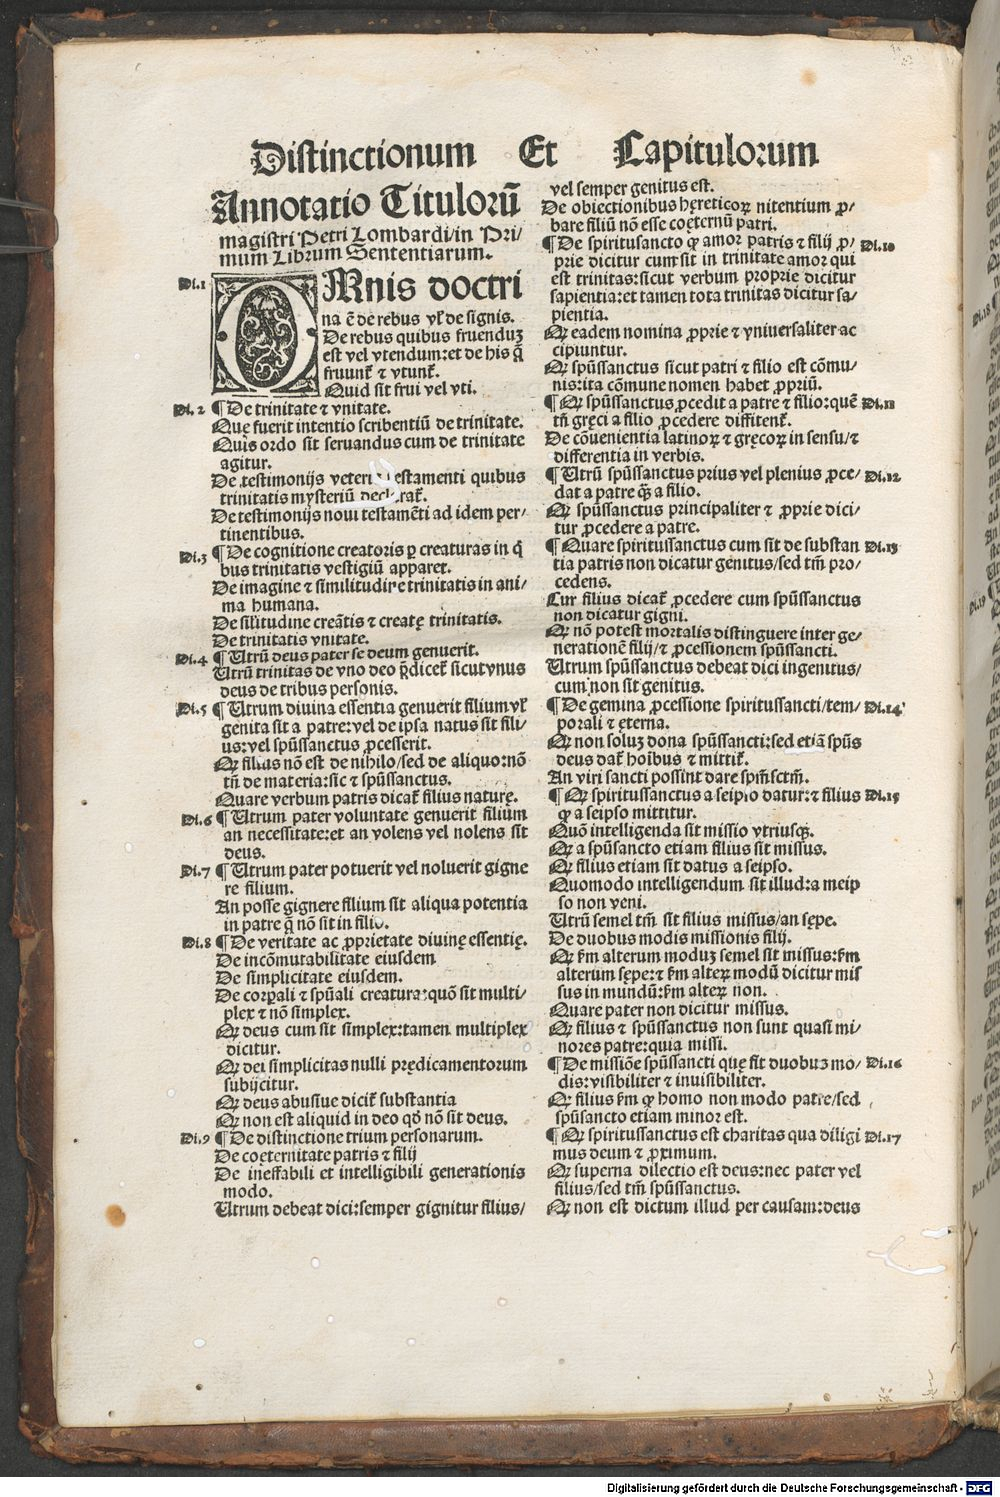 Distinctionum Et Capitulorum
Annotatio Titulorũ
magistri Petri Lombardi/in Pri/
mum Librum Sententiarum.
Di.1 OMnis doctri
na ẽ de rebus vł de signis.
De rebus quibus fruenduꝫ
est vel vtendum:et de his q̃
fruunť ⁊ vtunť.
Quid sit frui vel vti.
Di.2 ¶ De trinitate ⁊ vnitate.
Quę fuerit intentio scribentiũ de trinitate.
Quis ordo sit seruandus cum de trinitate
agitur.
De testimonijs veteris testamenti quibus
trinitatis mysteriũ declarať.
De testimonijs noui testamẽti ad idem per/
tinentibus.
Di.3 ¶ De cognitione creatoris ꝑ creaturas in q̇
bus trinitatis vestigiũ apparet.
De imagine ⁊ similitudine trinitatis in ani/
ma humana.
De silitudine creãtis ⁊ creatę trinitatis.
De trinitatis vnitate.
Di.4 ¶ Utrũ deus pater se deum genuerit.
Utrũ trinitas de vno deo p̃diceť sicut vnus
deus de tribus personis.
Di.5 ¶ Utrum diuina essentia genuerit filium vł
genita sit a patre:vel de ipsa natus sit fili/
us:vel spũssanctus ꝓcesserit.
Qꝛ filius nõ est de nihilo/sed de aliquo:nõ
tñ de materia:sic ⁊ spũssanctus.
Quare verbum patris dicať filius naturę.
Di.6 ¶ Utrum pater voluntate genuerit filium
an necessitate:et an volens vel nolens sit
deus.
Di.7 ¶ Utrum pater potuerit vel noluerit gigne
re filium.
An posse gignere filium sit aliqua potentia
in patre q̃ nõ sit in filio.
Di.8 ¶ De veritate ac ꝓprietate diuinę essentię.
De incõmutabilitate eiusdem
De simplicitate eiusdem.
De corꝑali ⁊ spũali creatura:quõ sit multi/
plex ⁊ nõ simplex.
Qꝛ deus cum sit simplex:tamen multiplex
dicitur.
Qꝛ dei simplicitas nulli prędicamentorum
subijcitur.
Qꝛ deus abusiue diciť substantia
Qꝛ non est aliquid in deo qđ nõ sit deus.
Di.9 ¶ De distinctione trium personarum.
De coęternitate patris ⁊ filij
De ineffabili et intelligibili generationis
modo.
Utrum debeat dici:semper gignitur filius/
vel semper genitus est.
De obiectionibus hęreticoꝝ nitentium ꝓ/
bare filiũ nõ esse coęternũ patri.
¶ De spiritusancto ꝙ amor patris ⁊ filij ꝓ/ Di.10
prie dicitur cum sit in trinitate amor qui
est trinitas:sicut verbum proprie dicitur
sapientia:et tamen tota trinitas dicitur sa/
pientia.
Qꝛ eadem nomina ꝓprie ⁊ vniuersaliter ac
cipiuntur.
Qꝛ spũssanctus sicut patri ⁊ filio est cõmu/
nis:ita cõmune nomen habet ꝓpriũ.
¶ Qꝛ spũssanctus ꝓcedit a patre ⁊ filio:quẽ Di.11
tñ gręci a filio ꝓcedere diffitenť.
De cõuenientia latinoꝝ ⁊ gręcoꝝ in sensu/⁊
differentia in verbis.
¶ Utrũ spũssanctus prius vel plenius ꝓce/ Di.12
dat a patre q̃ꝫ a filio.
Qꝛ spũssanctus principaliter ⁊ ꝓprie dici/
tur ꝓcedere a patre.
¶ Quare spiritussanctus cum sit de substan Di.13
tia patris non dicatur genitus/sed tm̃ pro/
cedens.
Cur filius dicať ꝓcedere cum spũssanctus
non dicatur gigni.
Qꝛ nõ potest mortalis distinguere inter ge/
nerationẽ filij/⁊ ꝓcessionem spũssancti.
Utrum spũssanctus debeat dici ingenitus/
cum non sit genitus.
¶ De gemina ꝓcessione spiritussancti/tem/ Di.14
porali ⁊ ęterna.
Qꝛ non soluꝫ dona spũssancti:sed etiã spũs
deus dať hoibus ⁊ mittiť.
An viri sancti possint dare spm̃sctm̃.
¶ Qꝛ spiritussanctus a seipso datur:⁊ filius Di.15
ꝙ a seipso mittitur.
Quõ intelligenda sit missio vtriusqꝫ.
Qꝛ a spũsancto etiam filius sit missus.
Qꝛ filius etiam sit datus a seipso.
Quomodo intelligendum sit illud:a meip
so non veni.
Utrũ semel tm̃ sit filius missus/an sępe.
De duobus modis missionis filij.
Qꝛ ẜm alterum moduꝫ semel sit missus:ẜm
alterum sępe:⁊ ẜm alteꝝ modũ dicitur mis
sus in mundũ:ẜm alteꝝ non.
Quare pater non dicitur missus.
Qꝛ filius ⁊ spũssanctus non sunt quasi mi/
nores patre:quia missi.
¶ De missiõe spũssancti quę fit duobuꝫ mo/ Di.16
dis:visibiliter ⁊ inuisibiliter.
Qꝛ filius ẜm ꝙ homo non modo patre/sed
spũsancto etiam minor est.
¶ Qꝛ spiritussanctus est charitas qua diligi Di.17
mus deum ⁊ ꝓximum.
Qꝛ superna dilectio est deus:nec pater vel
filius/sed tm̃ spũssanctus.
Qꝛ non est dictum illud per causam:deus
Digitalisierung gefördert durch die Deutsche Forschungsgemeinschaft - DFG